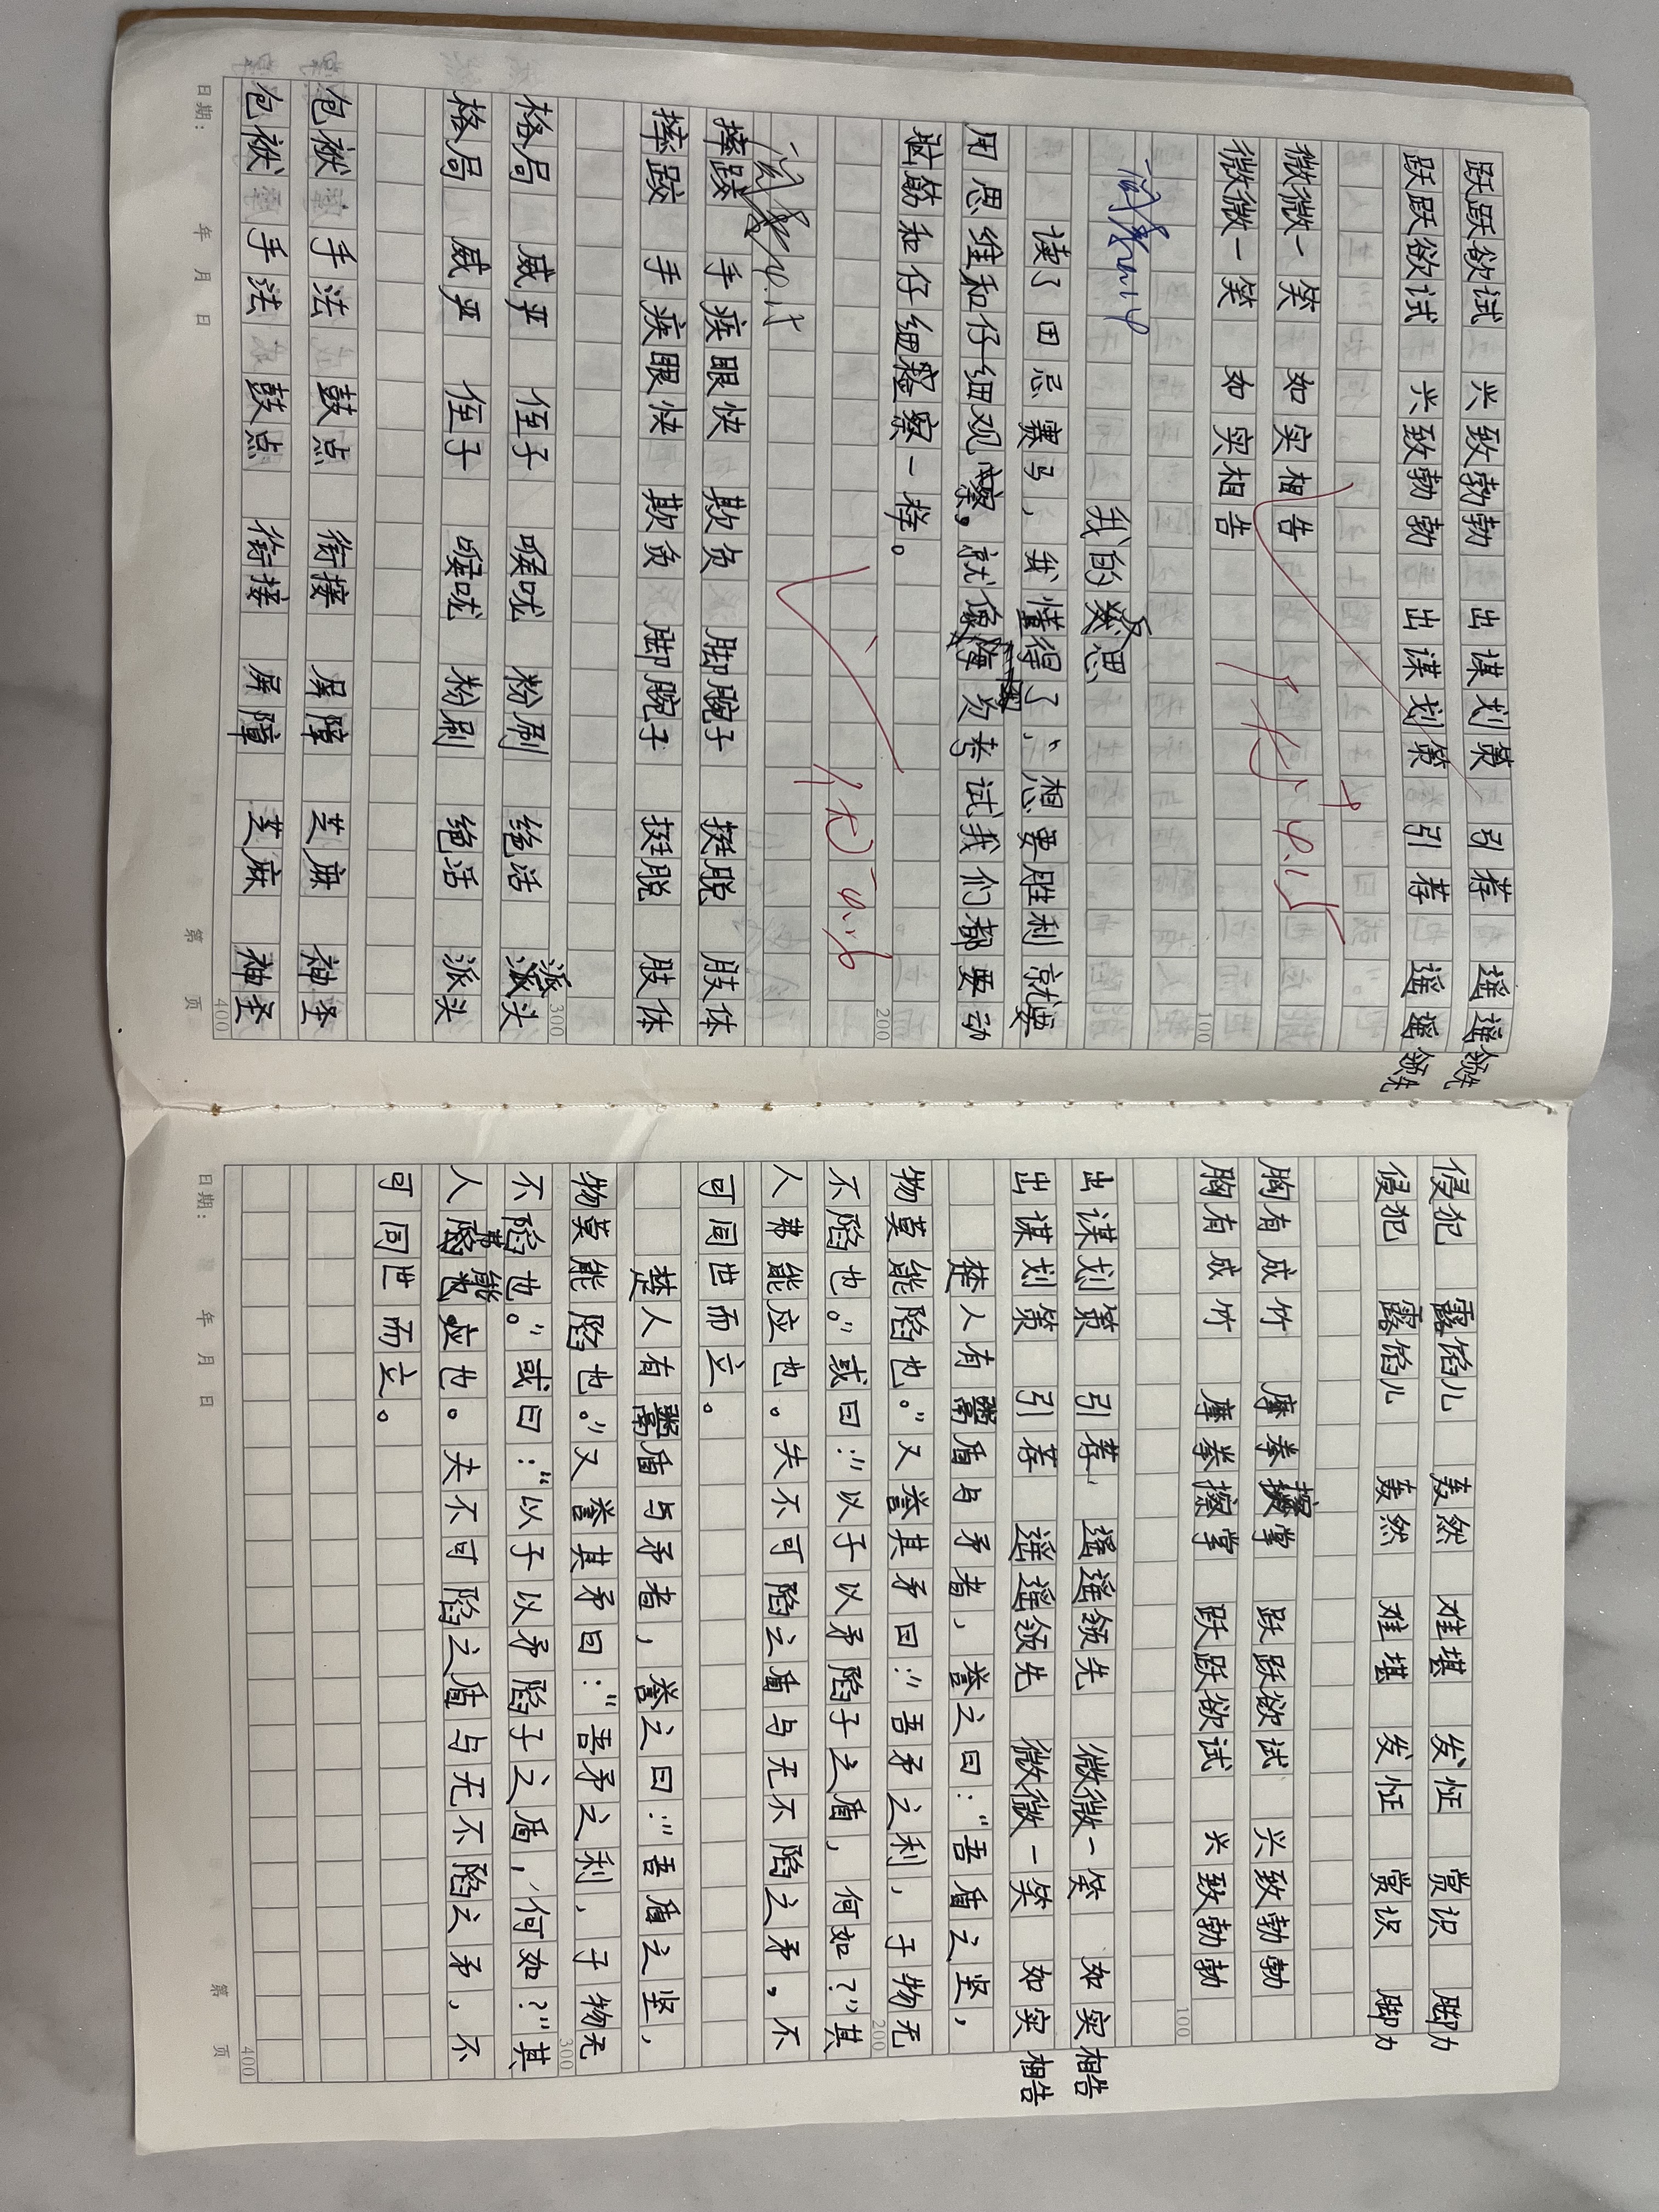 跃跃欲试 兴致勃勃 出谋划策 引荐 遥遥领先
跃跃欲试 兴致勃勃 出谋划策 引荐 遥遥领先
微微一笑 如实相告
微微一笑 如实相告
100
我的思
读了田忌赛马，我懂得了，想要胜利就要
用思维和仔细观察，就像每次考试我们都要动
脑筋和仔细察一样。
200
摔跤 手疾眼快 欺负 脚腕子 挺脱 肢体
摔跤 手疾眼快 欺负 脚腕子 挺脱 肢体
300
格局 威严 侄子 喉咙 粉刷 绝活 派头
格局 威严 侄子 喉咙 粉刷 绝活 派头
包袱 手法 鼓点 衔接 屏障 芝麻 神圣
包袱 手法 鼓点 衔接 屏障 芝麻 神圣
400
日期： 年 月 日 第 页
侵犯 露馅儿 轰然 难堪 发怔 赏识 脚力
侵犯 露馅儿 轰然 难堪 发怔 赏识 脚力
胸有成竹 摩拳擦掌 跃跃欲试 兴致勃勃
胸有成竹 摩拳擦掌 跃跃欲试 兴致勃勃
100
出谋划策 引荐 遥遥领先 微微一笑 如实相告
出谋划策 引荐 遥遥领先 微微一笑 如实相告
楚人有鬻盾与矛者，誉之曰：“吾盾之坚，
物莫能陷也。”又誉其矛曰：“吾矛之利，于物无
不陷也。”或曰：“以子以矛陷子之盾，何如？”其
200
人弗能应也。夫不可陷之盾与无不陷之矛，不
可同世而立。
楚人有鬻盾与矛者，誉之曰：“吾盾之坚，
物莫能陷也。”又誉其矛曰：“吾矛之利，于物无
300
不陷也。”或曰：“以子以矛陷子之盾，何如？”其
人弗能应也。夫不可陷之盾与无不陷之矛，不
可同世而立。
400
日期： 年 月 日 第 页